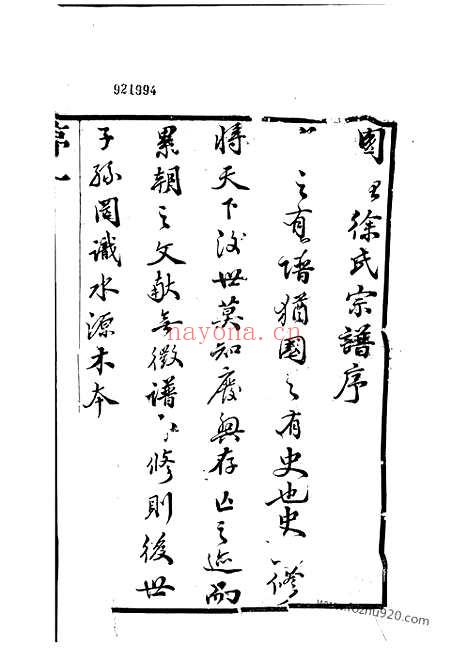 921994
國 徐氏宗譜序
之有譜猶國之有史也史 修
時天下後世莫知廢興存亡之迹而
累朝之文献無徵譜 修則後世
子孫罔識水源木本
序一
nayona.cn
www.fozhu920.com